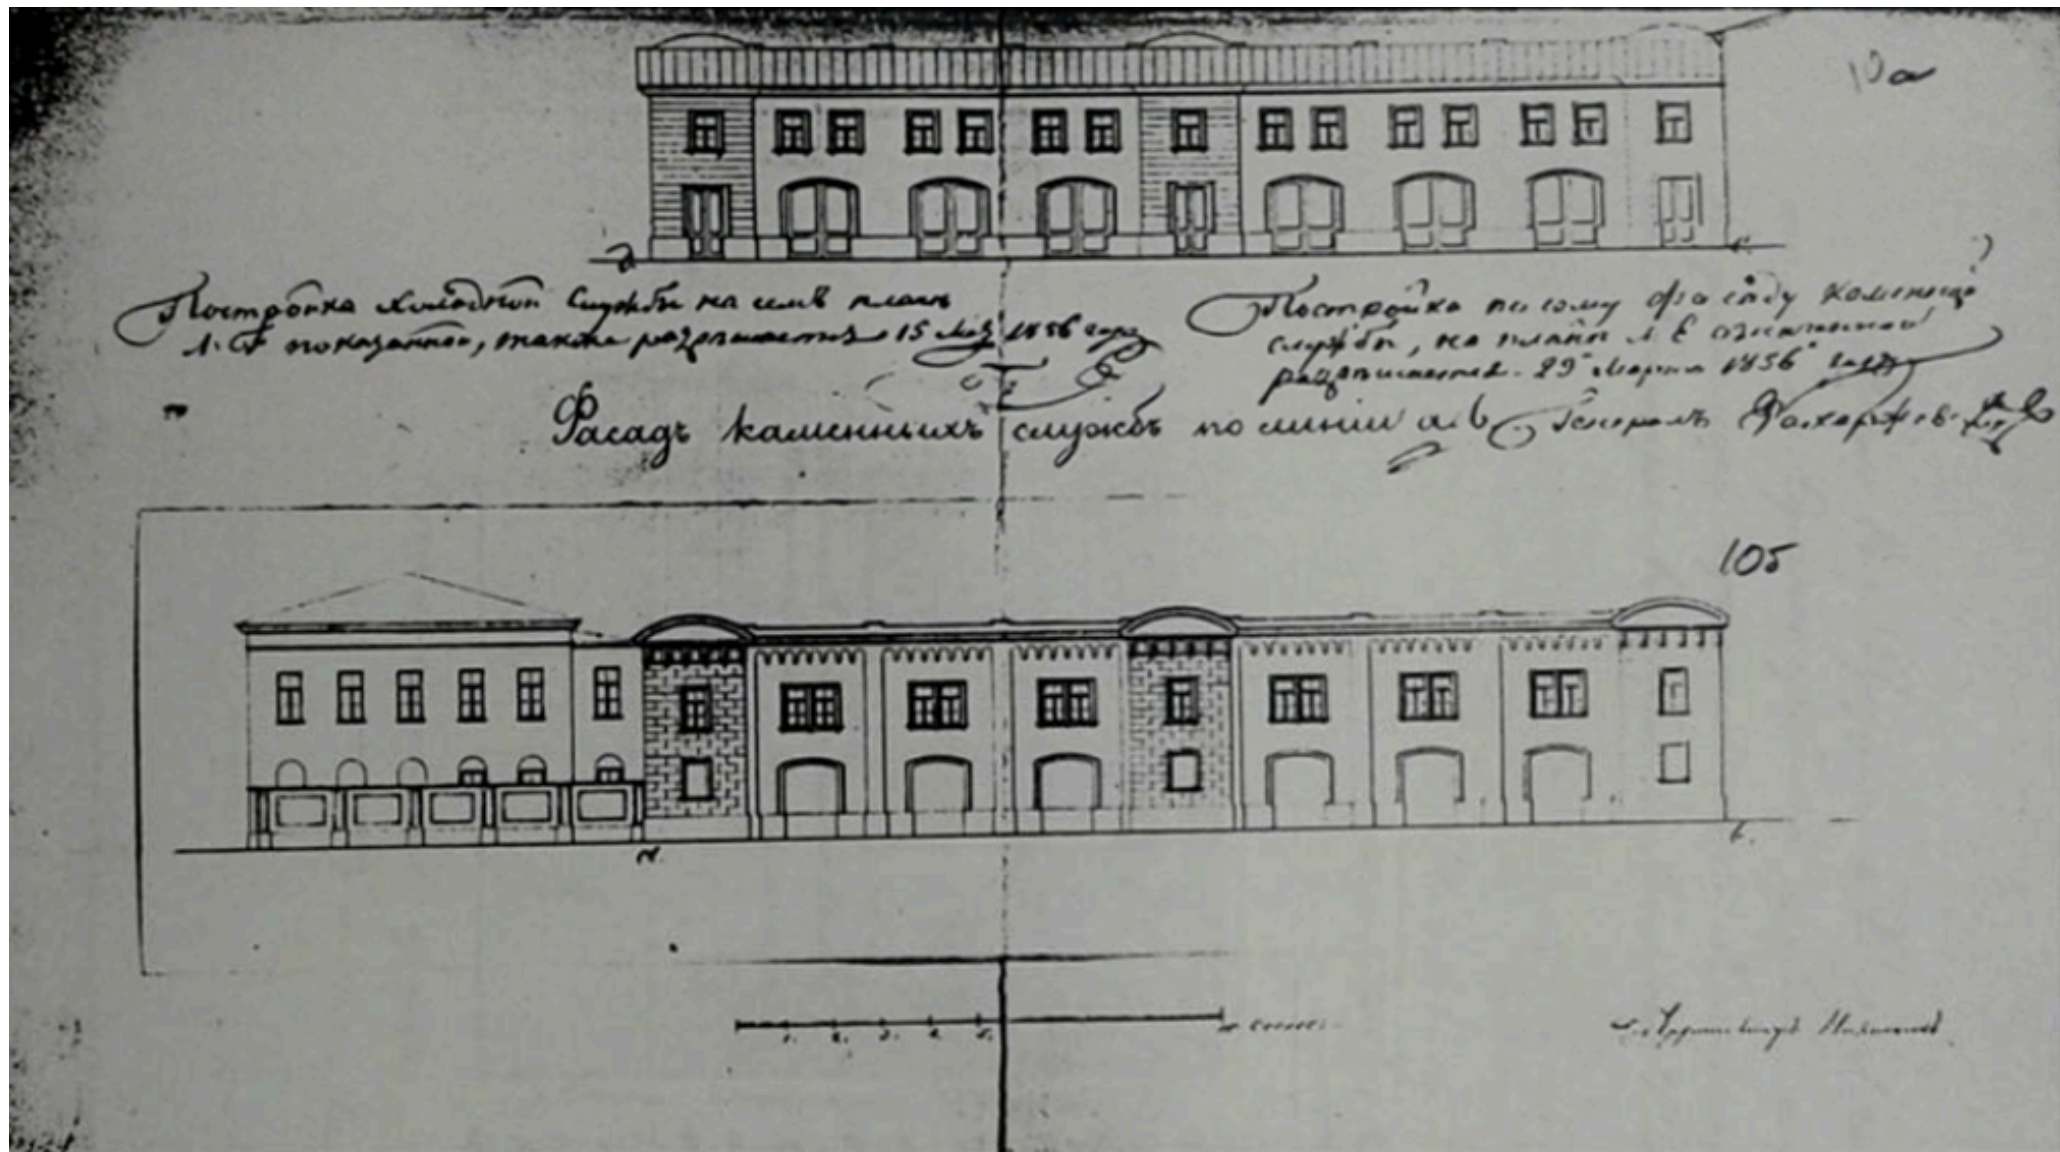 10а
Постройка холодной службы на семъ планѣ
показанной, также разрѣшается 15 Мая 1856 года
Постройка по сему фасаду каменной
службы, на планѣ означенной
разрѣшается 29 Марта 1856 года
Фасадъ каменныхъ службъ по линіи а. в.
Генералъ
10б
а.
в.
1. 2. 3. 4. 5.